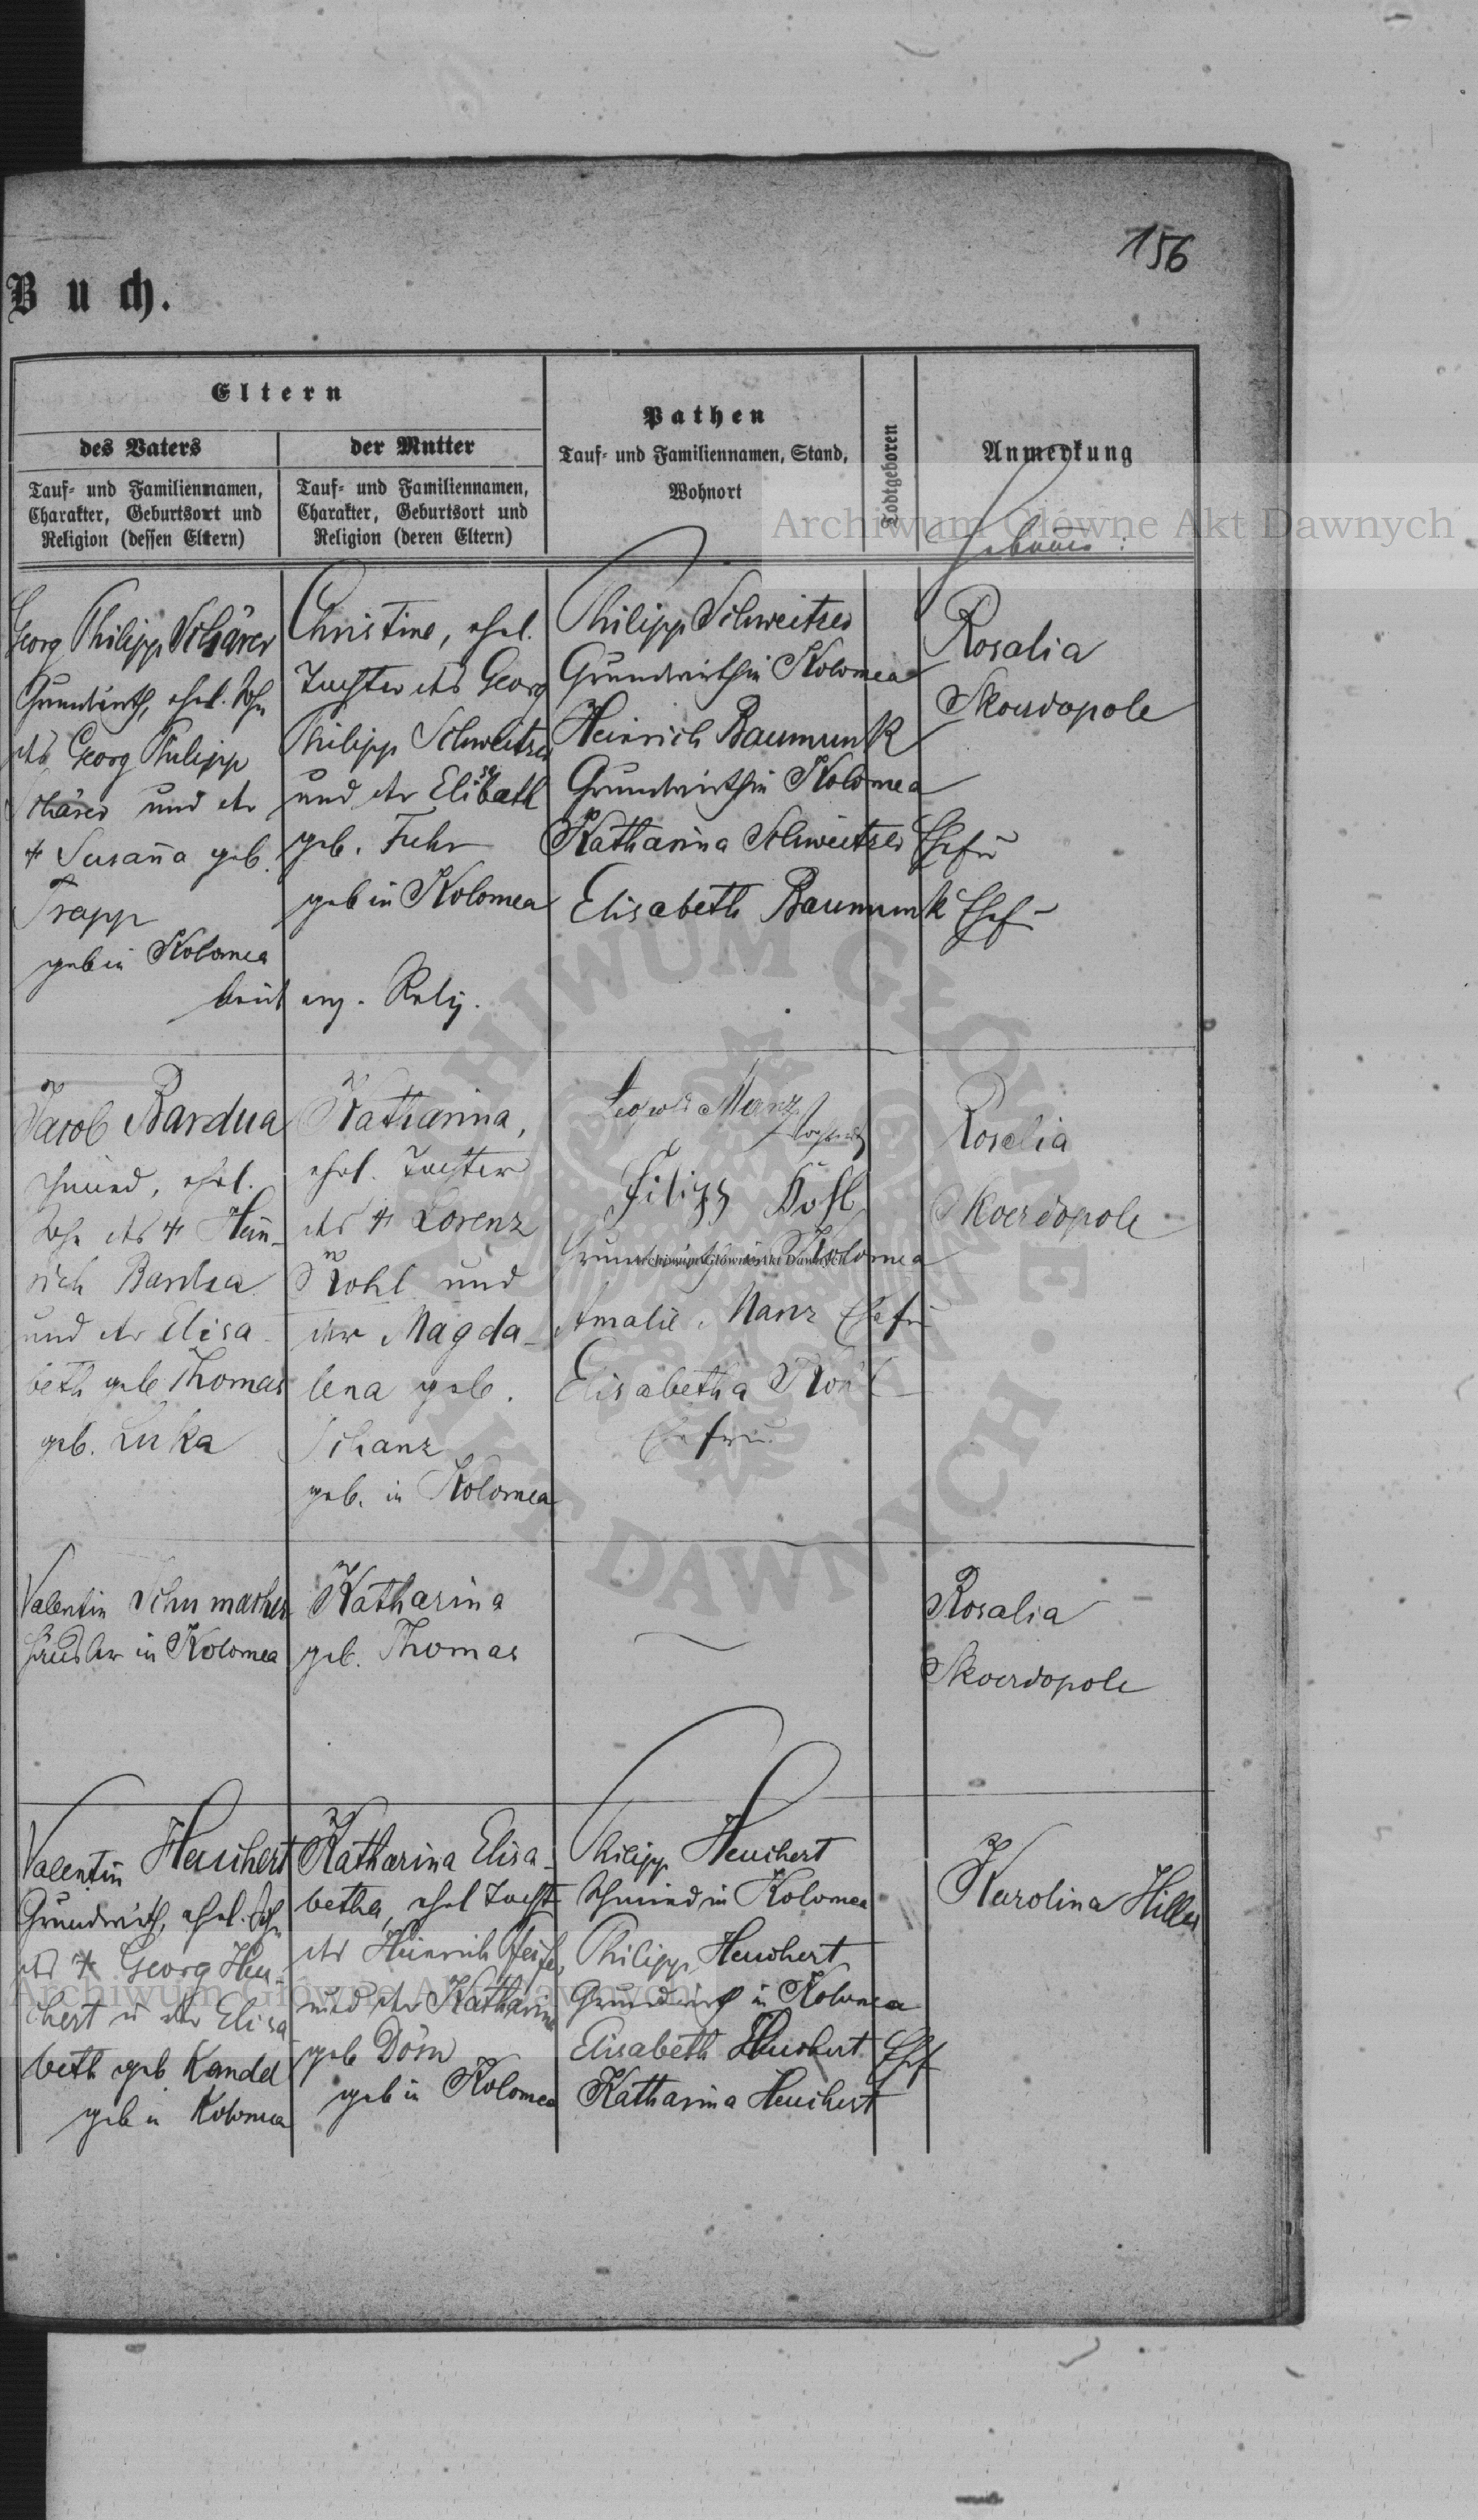 156
Buch.
Eltern
des Vaters
Tauf- und Familiennamen,
Charakter, Geburtsort und
Religion (dessen Eltern)
der Mutter
Tauf- und Familiennamen,
Charakter, Geburtsort und
Religion (deren Eltern)
Pathen
Tauf- und Familiennamen, Stand,
Wohnort
Todtgeboren
Anmerkung
Archiwum Główne Akt Dawnych
Georg Philipp Schärer
Grundwirth, ehel. Sohn
des Georg Philipp
Schärer und der
† Susanna geb.
Trapp
geb in Kolomea
Christine, ehel.
Tochter des Georg
Philipp Schweitzer
und der Elisabeth
geb. Fuhr
geb in Kolomea
beide evg. Relig.
Philipp Schweitzer
Grundwirth in Kolomea
Heinrich Baumunk
Grundwirth in Kolomea
Katharina Schweitzer Ehefr
Elisabeth Baumunk Ehef
Rosalia
Skoerdopole
Jacob Bardua
Schmied, ehel.
Sohn des † Hein-
rich Bardua
und der Elisa-
beth geb Thomas
geb. Luka
Katharina,
ehel. Tochter
des † Lorenz
Kohl und
der Magda-
lena geb.
Schanz
geb. in Kolomea
Leopold Manz
Filipp
Kolomea
Archiwum Główne Akt Dawnych
Amalie Manz Ehefr
Elisabetha
Ehefrau
Rosalia
Skoerdopole
Valentin Schumacher
Häusler in Kolomea
Katharina
geb. Thomas
Rosalia
Skoerdopole
Valentin Heuchert
Grundwirth, ehel. Sohn
des † Georg Heu-
chert u der Elisa-
beth geb Kandel
geb in Kolomea
Katharina Elisa-
betha, ehel Tocht
des Heinrich
und der Katharina
geb Dörn
geb in Kolomea
Philipp Heuchert
Schmied in Kolomea
Philipp Heuchert
Grundwirth in Kolomea
Elisabeth Heuchert Ehf
Katharina Heuchert
Karolina Hiller
Archiwum Główne Akt Dawnych
ARCHIWUM GŁÓWNE AKT DAWNYCH